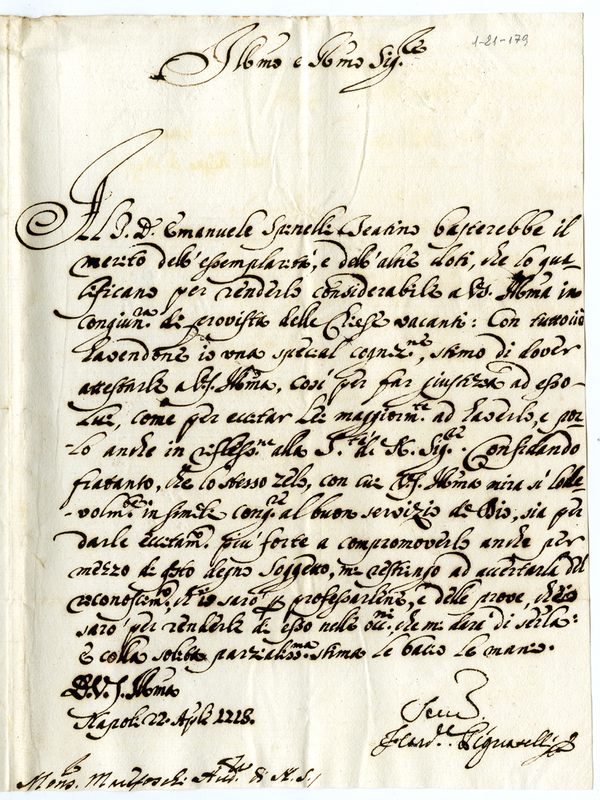 1-21-179
Ill.mo e R.mo Sig.re
Al P. D. Emanuele Spinelli Teatino basterebbe il
merito dell'essemplarità, e dell'altre doti, che lo qua-
lificano per renderlo considerabile a V.S. Ill.ma in
congiun.ra di provista delle Chiese vacanti: Con tuttociò
havendone io una special cogniz.ne, stimo di dover
attestarle a V.S. Ill.ma, così per far giustizia ad esso
come per eccitar Lei maggiorm.te ad haverlo, e por-
-lo anche in rifless.ne alla S.tà di N. Sig.re Confidando
frattanto, che lo stesso zelo, con cui V.S. Ill.ma mira sì lode-
-volm.te in simile cong.re al buon servizio di Dio, sia per
darle eccitam.to più forte a compromoverlo anche per
mezzo di q.sto degno soggetto, mi restringo ad accertarla del
riconoscim.to, ch'io sarò p professarline, e delle prove, ch'io
sarò per renderle di esso nelle che mi darà di servirla:
E colla solita parzialiss.ma stima le bacio le mani.
D.V.S. Ill.ma
Napoli 22. Aple 1718.
Serv.
Il Card. Pignatelli
Mons. Aud.re di N.S.